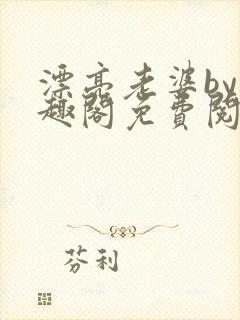 漂亮老婆by
趣阁免費閱
芬利